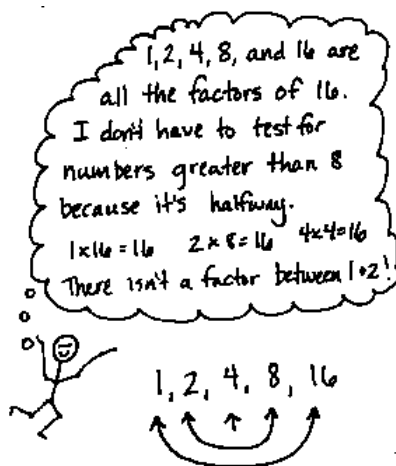 1, 2, 4, 8, and 16 are
all the factors of 16.
I don't have to test for
numbers greater than 8
because it's halfway.
1 x 16 = 16 2 x 8 = 16 4x4=16
There isn't a factor between 1+2!
1, 2, 4, 8, 16